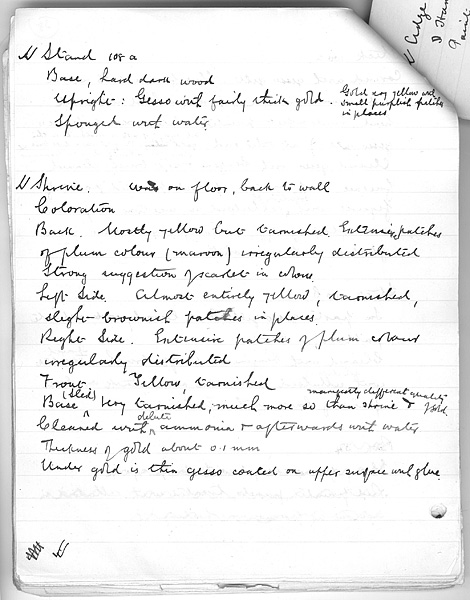 Stand 108 a
Base, hard dark wood
Upright: Gesso with fairly thick gold. Gold v. yellow with
small purplish patches
in places
Sponged with water
Shrine. was on floor, back to wall
Coloration
Back. Mostly yellow but tarnished. Extensive patches
of plum colour (maroon) irregularly distributed
Strong suggestion of scarlet in colour.
Left Side. Almost entirely yellow, tarnished,
slight brownish patches in places.
Right Side. Extensive patches of plum colour
irregularly distributed
Front. Yellow, tarnished
Base (sled) very tarnished, much more so than shrine & manifestly different quality gold
Cleaned with dilute ammonia & afterwards with water
Thickness of gold about 0.1 mm
Under gold is thin gesso coated on upper surface with glue.